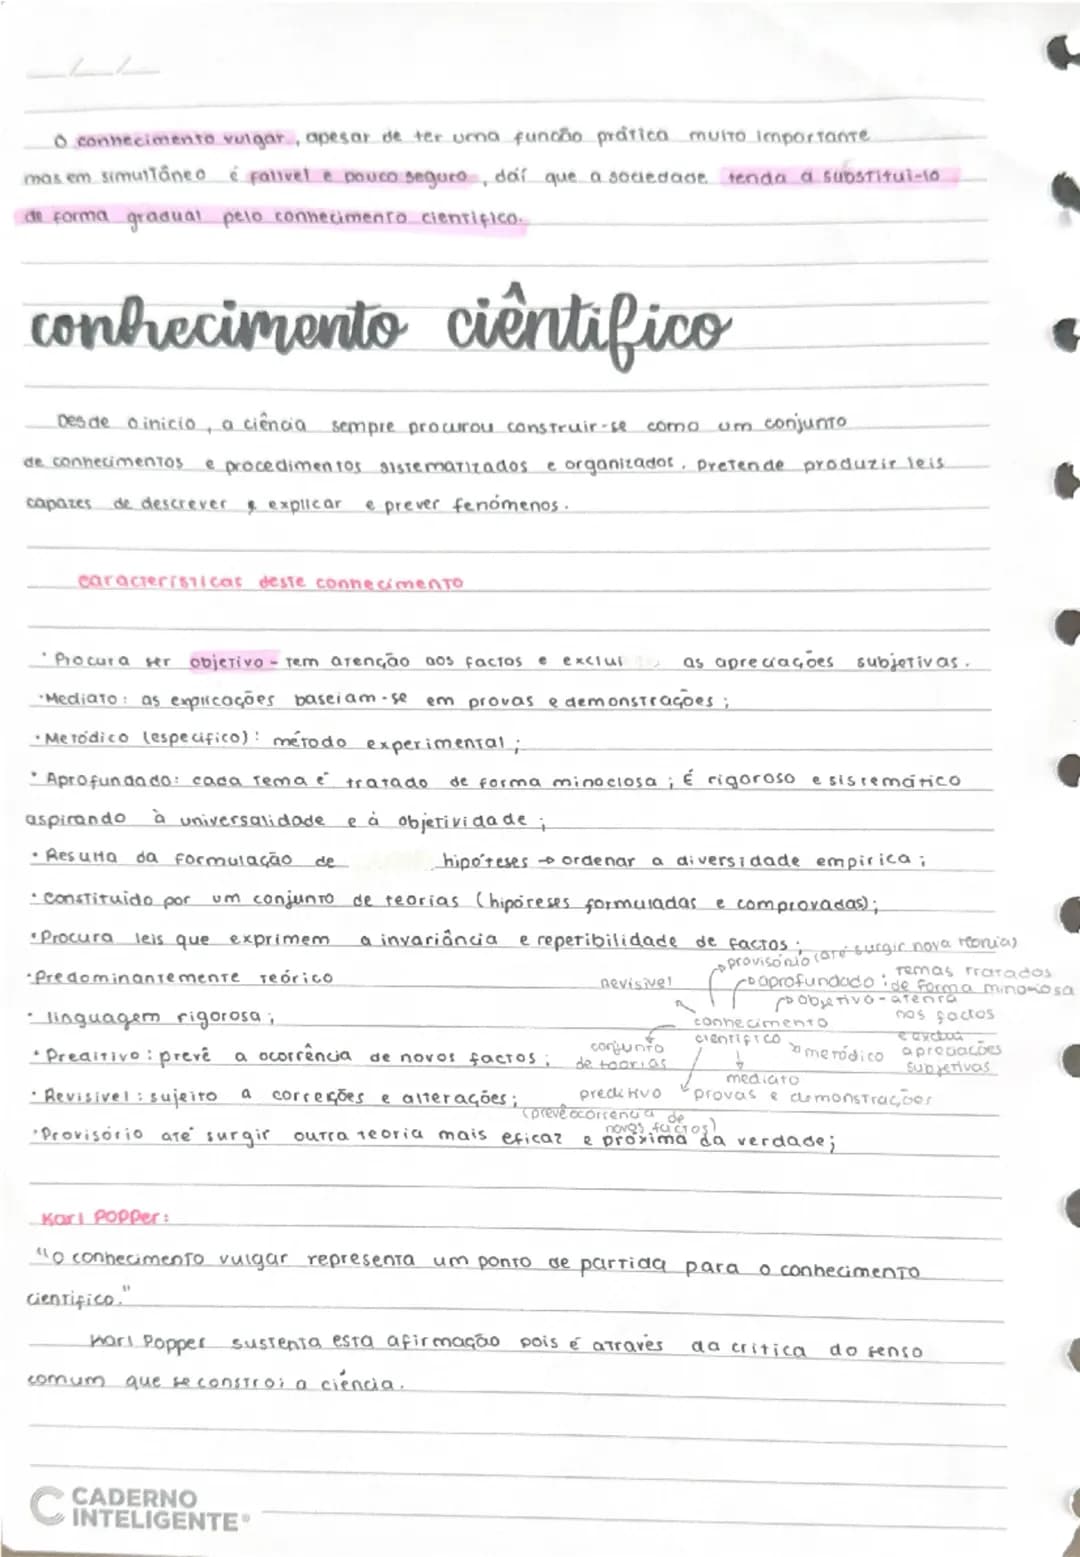 O conhecimento vulgar, apesar de ter uma função prática muito importante
mas em simultâneo é falível e pouco seguro, daí que a sociedade tenda a substitui-lo
de forma gradual pelo conhecimento cientifico.
conhecimento ciêntifico
Desde o inicio, a ciência sempre procurou construir-se como um conjunto
de conhecimentos e procedimentos sistematizados e organizados. Pretende produzir leis
capazes de descrever, explicar e prever fenómenos.
características deste conhecimento
• Procura ser objetivo - tem atenção aos factos e exclui as apreciações subjetivas.
• Mediato: as explicações baseiam-se em provas e demonstrações;
• Metódico (especifico): método experimental;
• Aprofundado: cada tema é tratado de forma minociosa; É rigoroso e sistemático
aspirando à universalidade e à objetividade;
• Resulta da formulação de hipóteses → ordenar a diversidade empirica;
• Constituído por um conjunto de teorias (hipóteses formuladas e comprovadas);
• Procura leis que exprimem a invariância e repetibilidade de factos;
• Predominantemente teórico
• linguagem rigorosa;
• Preditivo: prevê a ocorrência de novos factos;
• Revisível: sujeito a correções e alterações;
• Provisório até surgir outra teoria mais eficaz e próxima da verdade;
provisório (até surgir nova teoria)
aprofundado: temas tratados
de forma minociosa
objetivo - atenta
nos factos
e exclui
apreciações
subjetivas
revisível
conhecimento
científico
metódico
conjunto
de teorias
mediato
provas e demonstrações
preditivo
(prevê ocorrência de
novos factos)
Karl Popper:
"O conhecimento vulgar representa um ponto de partida para o conhecimento
cientifico."
Karl Popper sustenta esta afirmação pois é através da critica do senso
comum que se constroi a ciência.
CADERNO
INTELIGENTE®